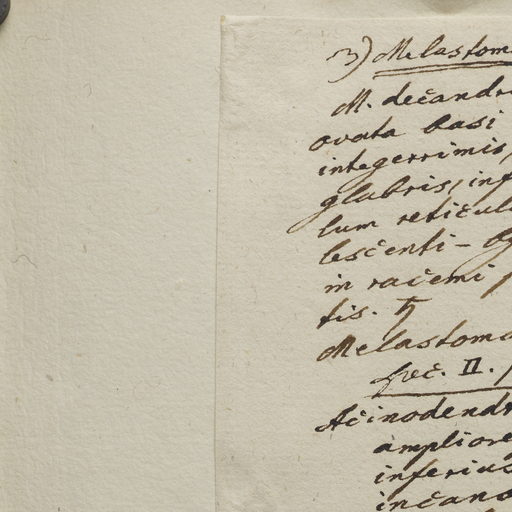 3) Melastom
M. decandr
ovata basi
integerrimis,
glabris, inf
lum reticul
lescenti -
in racemi
tis. ♄
Melastoma
Spec. II.
Acinodendr
ampliore
inferius
incano